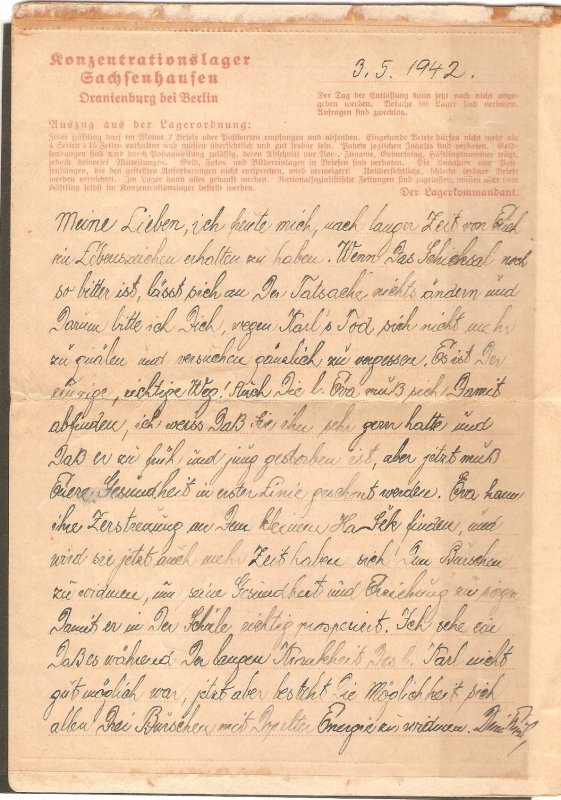 Konzentrationslager
Sachsenhausen
Oranienburg bei Berlin
3. 5. 1942.
Der Tag der Entlassung kann jetzt noch nicht ange-
geben werden. Besuche im Lager sind verboten.
Anfragen sind zwecklos.
Auszug aus der Lagerordnung:
Jeder Häftling darf im Monat 2 Briefe oder Postkarten empfangen und absenden. Eingehende Briefe dürfen nicht mehr als
4 Seiten à 15 Zeilen enthalten und müssen übersichtlich und gut lesbar sein. Pakete jeglichen Inhalts sind verboten. Geld-
sendungen sind nur durch Postanweisung zulässig, deren Abschnitt nur Vor-, Zuname, Geburtstag, Häftlingsnummer trägt,
jedoch keinerlei Mitteilungen. Geld, Fotos und Bildereinlagen in Briefen sind verboten. Die Annahme von Post-
sendungen, die den gestellten Anforderungen nicht entsprechen, wird verweigert. Unübersichtliche, schlecht lesbare Briefe
werden vernichtet. Im Lager kann alles gekauft werden. Nationalsozialistische Zeitungen sind zugelassen, müssen aber vom
Häftling selbst im Konzentrationslager bestellt werden.
Der Lagerkommandant.
Meine Lieben, ich freute mich, nach langer Zeit von Euch
ein Lebenszeichen erhalten zu haben. Wenn das Schicksal noch
so bitter ist, lässt sich an der Tatsache nichts ändern und
darum bitte ich Dich, wegen Karl's Tod, sich nicht mehr
zu quälen und versuchen gänzlich zu vergessen. Es ist der
einzige, richtige Weg! Auch die l. Eva muß sich damit
abfinden, ich weiss daß sie ihn sehr gern hatte und
daß er zu früh und jung gestorben ist, aber jetzt muß
Eure Gesundheit in erster Linie geschont werden. Eva kann
ihre Zerstreuung an dem kleinen finden, und
wird sie jetzt auch mehr Zeit haben sich dem Burschen
zu widmen, um seine Gesundheit und Erziehung zu sorgen
damit er in der Schule richtig prosperiert. Ich sehe ein
daß es während der langen Krankheit des l. Karl nicht
gut möglich war, jetzt aber besteht die Möglichkeit sich
allen drei Burschen mit doppelter Energie zu widmen.